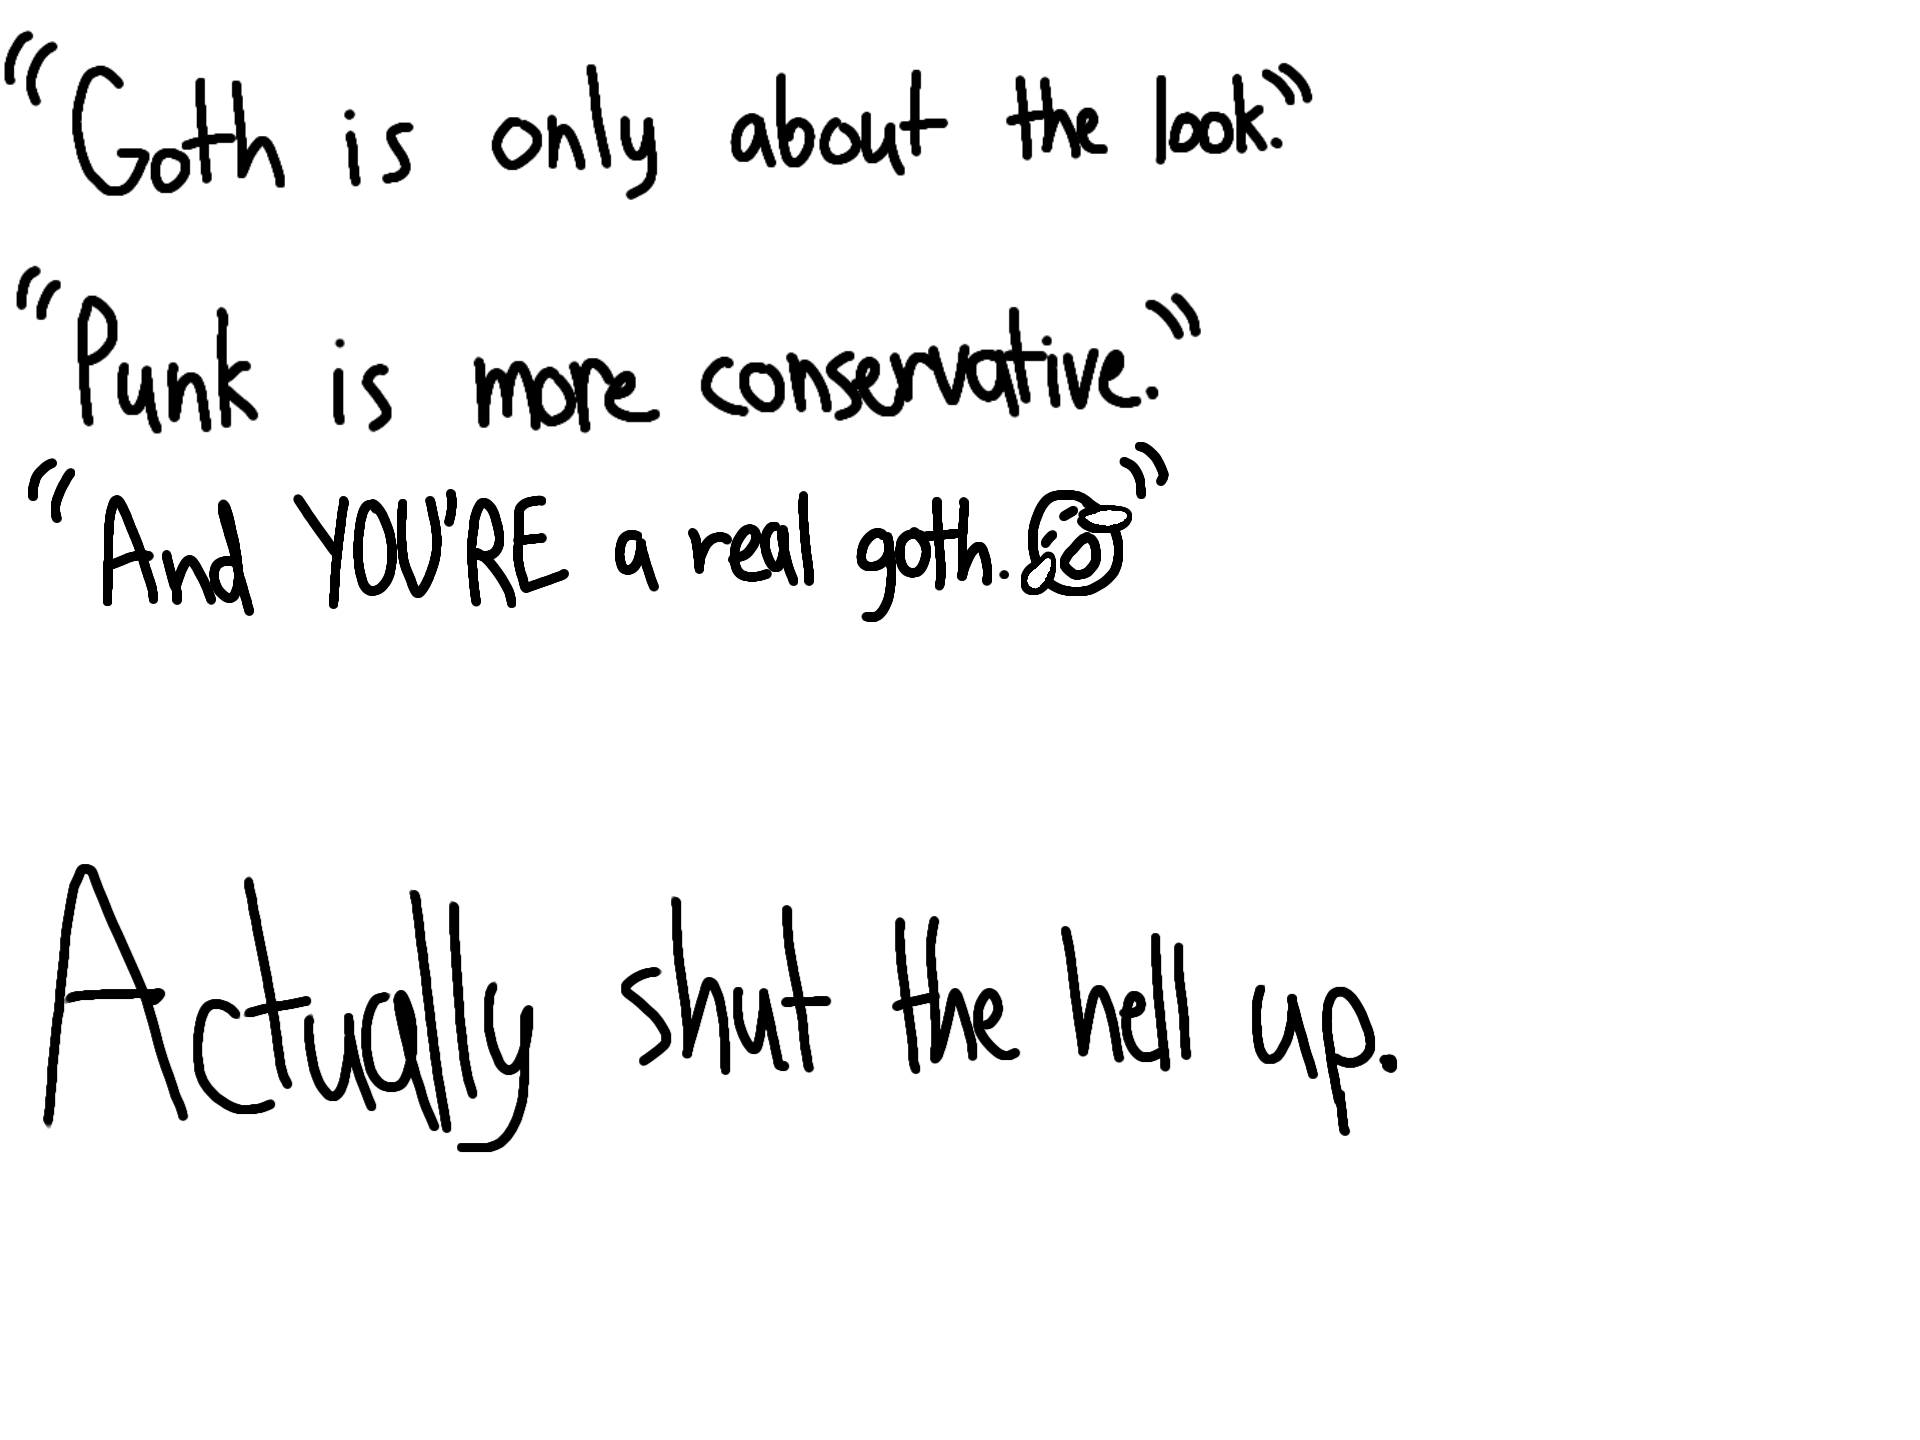 "Goth is only about the look."
"Punk is more conservative."
"And YOU'RE a real goth.🤣"
Actually shut the hell up.